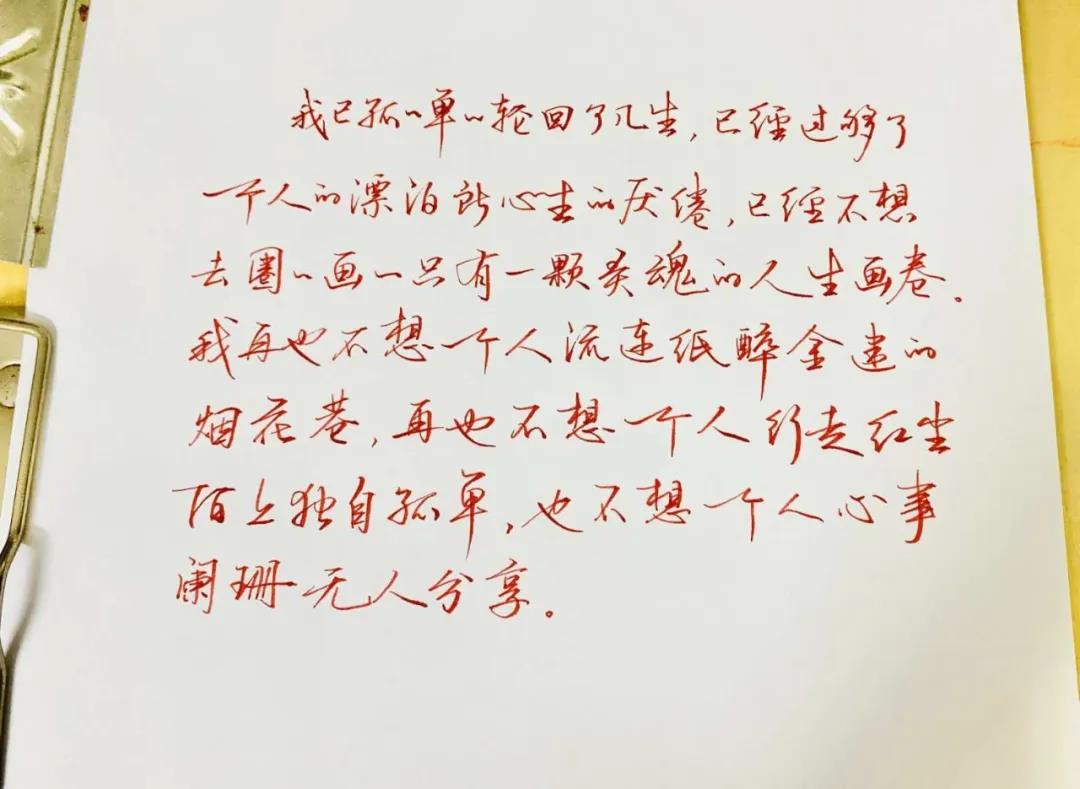 我已孤单轮回了几生，已经过够了
一个人的漂泊所心生的厌倦，已经不想
去圈画一只有一颗灵魂的人生画卷。
我再也不想一个人流连纸醉金迷的
烟花巷，再也不想一个人行走红尘
陌上独自孤单，也不想一个人心事
阑珊无人分享。